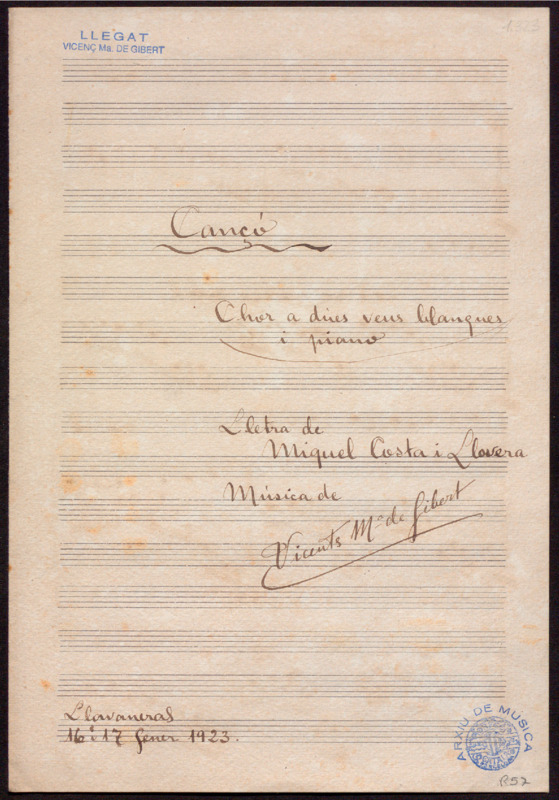 LLEGAT
VICENÇ Ma. DE GIBERT
1.923
Cançó
Chor a dúes veus blanques
i piano
Lletra de
Miquel Costa i Llovera
Música de
Vicents Mª de Gibert
Llavaneras
16 i 17 Gener 1923.
ARXIU DE MUSICA
R57